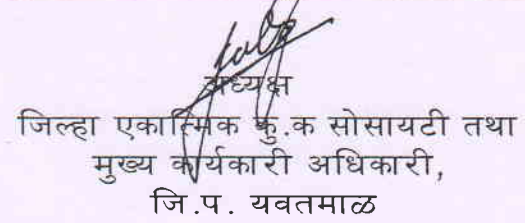 अध्यक्ष
जिल्हा एकात्मिक कु.क सोसायटी तथा
मुख्य कार्यकारी अधिकारी,
जि.प. यवतमाळ